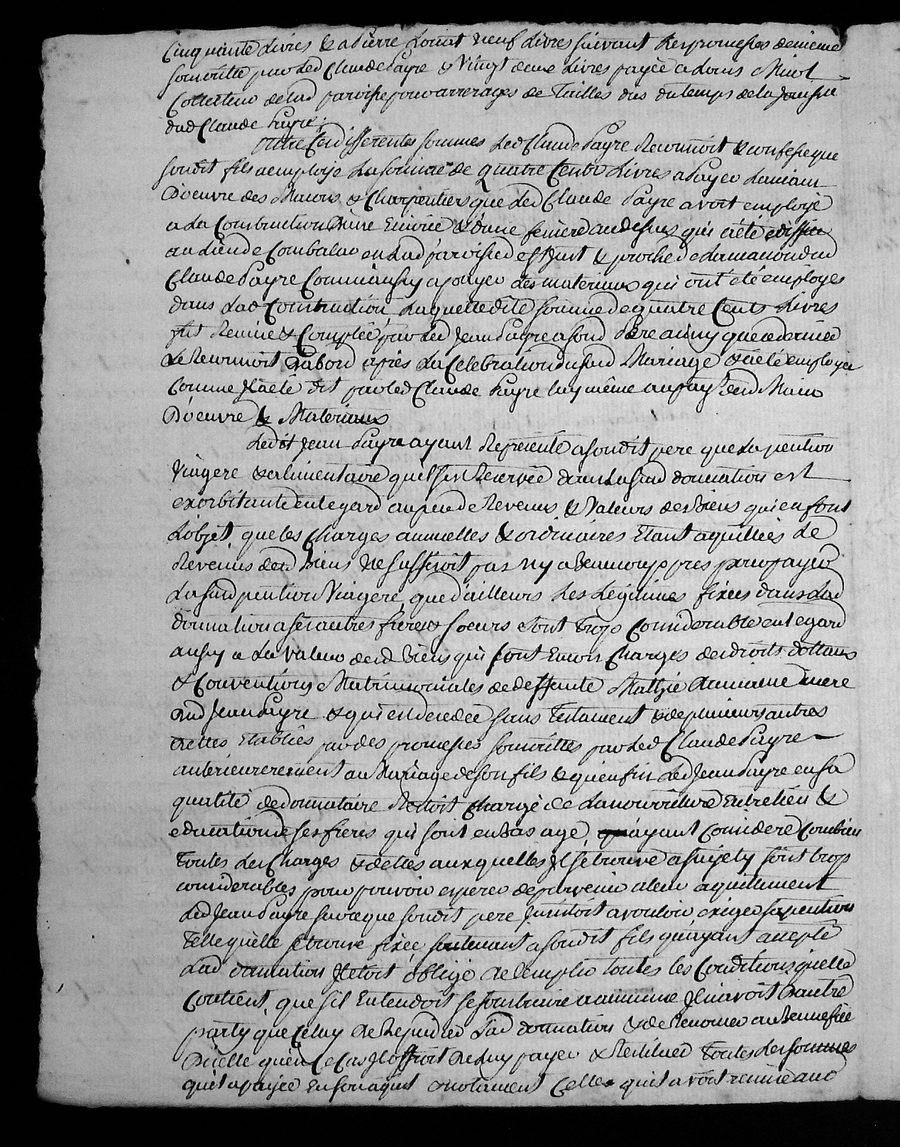 Cinquante Livres & a Pierre Louat neuf Livres suivant les promesses de meme
souscritte par led Claude Payre & Vingt deux Livres payée a Louis Miest
Collecteur de lad paroisse pour arrerages de Tailles dus du temps de la jouissce
dud Claude Payre;
Outre Ces differentes sommes Led Claude Payre Reconnoit & confesse que
soudit fils a employé La somme de quatre Cents Livres a Payer La main
D'oeuvre des Macons & Charpentiers que Led Claude Payre avoit employé
a la Construction D'une Ecurie & d'une feniere au dessus qui a été ediffiée
au lieu de Combalau en lad paroisse d & proche de La maison dud
Claude Payre Comme aussy a payer des materiaux qui ont été employes
dans Lad Construction Laquelle dite somme de quatre Cents Livres
fut Remise & Comptée par led Jean Payre a sond Pere ainsy que ce dernier
Le Reconnoit D'abord après La Celebration dusd Mariage & a été employée
Comme Il a été dit par led Claude Payre luy même au payt desd Main
D'oeuvre & Materiaux
Ledit Jean Payre ayant Representé a soudit pere que La pention
Viagere & alimentaire qu'il s'est Reservée dans La susd donnation est
exorbitante en legard au peu de Revenus & Valeurs des biens qui en font
L'objet, que les Charges annuelles & ordinaires Etant aquittées Le
Revenus desd Biens ne suffiroit pas n'y a beaucoup pres pour payer
La susd pention Viagere, que d'ailleurs Les Légitimes fixées dans Lad
donnation a ses autres freres & soeurs sont trop Considerable en legard
aussy a La Valeur desd Biens qui sont Encore Chargés des droits dottaux
& Conventions Matrimoniales de deffunte Mathie mere
dud Jean Payre & qui en decedée sans Testament & de plusieurs autres
dettes Etablies par des promesses souscrittes par led Claude Payre
anterieurement au Mariage de son fils & qu'enfin Led Jean Payre en sa
qualité de donnataire Restoit Chargé de La nourriture Entretien &
education de ses freres qui sont en bas age, ayant Consideré Combien
Toutes Les Charges & dettes auxquelles Il se trouve assujety sont trop
considerables pour pouvoir esperer de parvenir a leur aquittement
Led Jean Payre sur ce que soudit pere Insistoit a vouloir exiger sa pention
Telle qu'elle se trouve fixée soutenant a soudit fils qu'ayant accepté
Lad donnation Il etoit obligé de remplir toutes les Conditions quelle
Contient, que s'il Entendoit se soustraire a aucune Il n'avoit d'autre
party que Celuy de Resoudre Lad donnation & de Renoncer au Bennefice
D'icelle qu'en Ce Cas Il offroit de luy payer & Restituer Toutes Les sommes
qu'il a payée En son aquit & notament Celle qu'il avoit remise aud